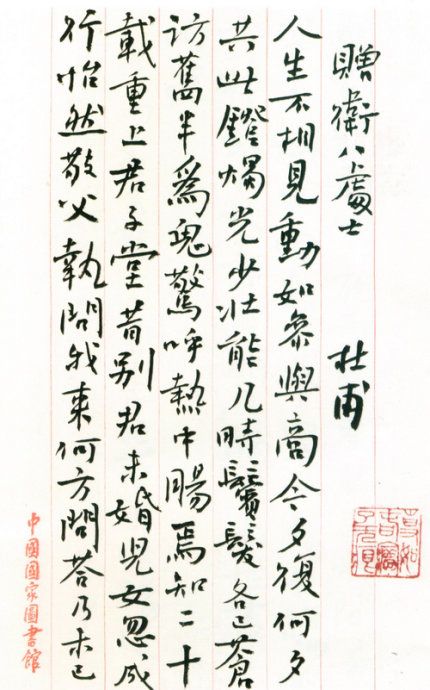 贈衛八處士 杜甫
人生不相見動如參與商今夕復何夕
共此鐙燭光少壯能几時鬢髮各已蒼
訪舊半爲鬼驚呼熱中腸焉知二十
載重上君子堂昔別君未婚兒女忽成
行怡然敬父執問我來何方問荅乃未已
中國國家圖書館